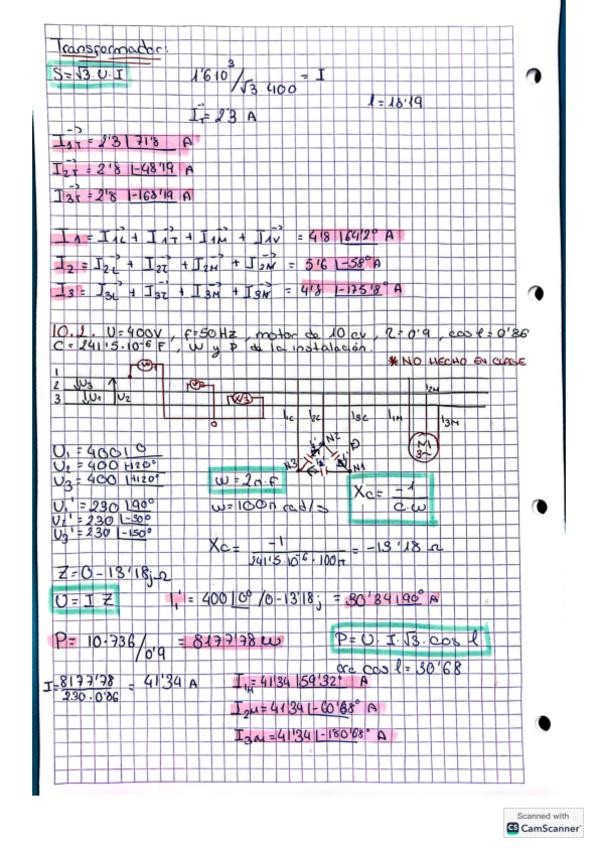 Transformador:
S=√3·U·I 1'6·10³/√3·400 = I
φ=18'19
I_T = 2'3 A
I_1T = 2'3|71'8 A
I_2T = 2'8|-48'19 A
I_3T = 2'8|-168'19 A
I_1 = I_1L + I_1T + I_1M + I_1V = 4'8|64'2° A
I_2 = I_2L + I_2T + I_2M + I_2M = 5'6|-58° A
I_3 = I_3L + I_3T + I_3M + I_3M = 4'8|-175'8° A
10.2. U=400V, f=50Hz, motor de 10 cv, η=0'9, cos φ=0'86
C=241'5·10⁻⁶ F, W y P de la instalación.
* NO HECHO EN CLASE
1
2
3
U3 U1 U2
W
W3
I1C I2C I3C I1M I2M I3M
N3 N2 N1
M
3~
U1 = 400|0
U2 = 400|-120°
U3 = 400|+120°
ω=2π·F
Xc = -1/C·ω
U1' = 230|90°
U2' = 230|-30°
U3' = 230|-150°
ω=100π rad/s
Xc = -1/241'5·10⁻⁶·100π = -13'18 Ω
Z=0-13'18j Ω
U=I·Z
I1' = 400|0°/0-13'18j = 30'34|90° A
P= 10·736/0'9 = 8177'78 W
P=U·I·√3·cos φ
arc cos φ=30'68
I=8177'78/230·0'86 = 41'34 A
I_1M=41'34|59'32° A
I_2M=41'34|-60'68° A
I_3M=41'34|-180'68° A
Scanned with
CS CamScanner